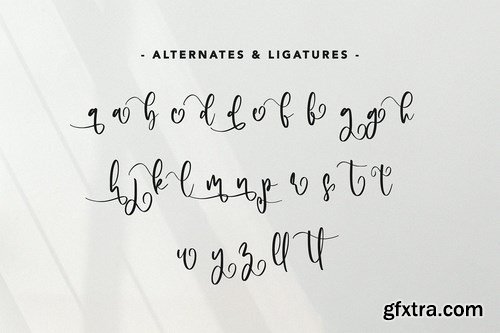 - ALTERNATES & LIGATURES -
a a b c d d e f b g g h
h j k l m n p r s t t
w y z ll tt
gfxtra.com